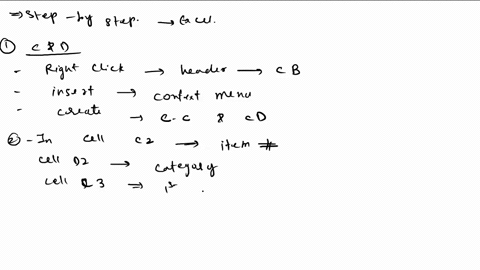 ⇒ Step-by step. → Excel.
① C & D
- Right click → header → C B
- insert → context menu
- create → C.C & CD
② - In cell C2 → item #
cell D2 → category
cell 3 → 1st